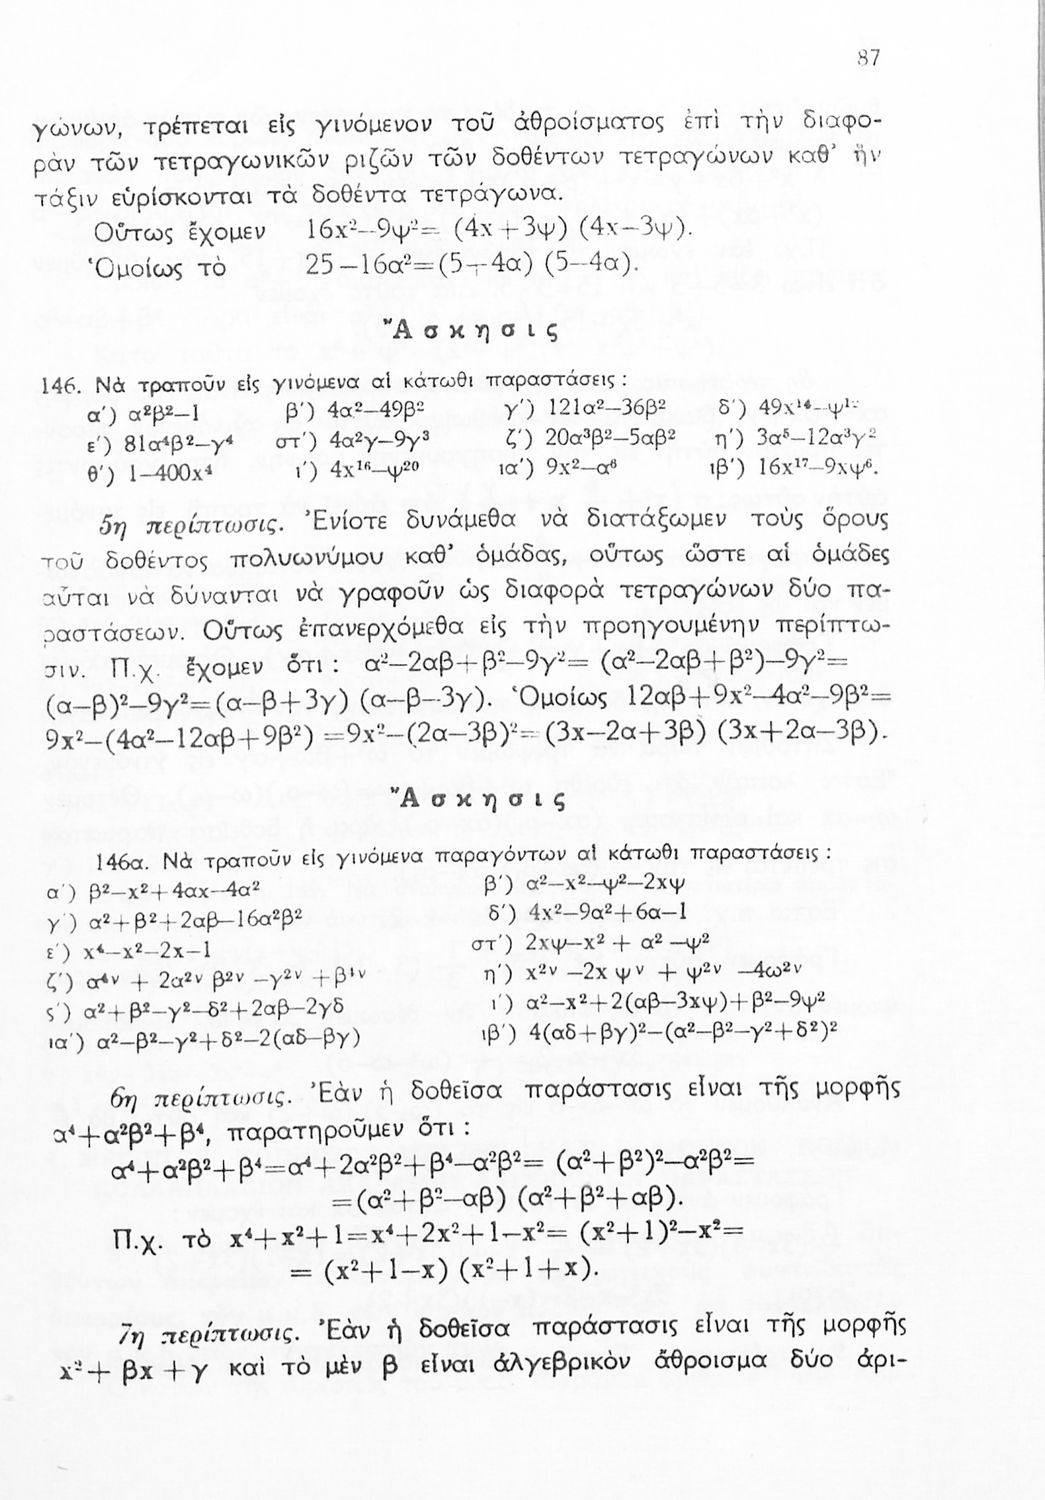 87
γώνων, τρέπεται εἰς γινόμενον τοῦ ἀθροίσματος ἐπὶ τὴν διαφο-
ρὰν τῶν τετραγωνικῶν ριζῶν τῶν δοθέντων τετραγώνων καθ’ ἣν
τάξιν εὑρίσκονται τὰ δοθέντα τετράγωνα.
Οὕτως ἔχομεν 16x²–9ψ²= (4x+3ψ) (4x–3ψ).
Ὁμοίως τὸ 25–16α²=(5+4α) (5–4α).
Ἄσκησις
146. Νὰ τραποῦν εἰς γινόμενα αἱ κάτωθι παραστάσεις :
α') α²β²–1 β') 4α²–49β² γ') 121α²–36β² δ') 49x¹⁴–ψ¹²
ε') 81α⁴β²–γ⁴ στ') 4α²γ–9γ³ ζ') 20α³β²–5αβ² η') 3α⁵–12α³γ²
θ') 1–400x⁴ ι') 4x¹⁶–ψ²⁰ ια') 9x²–α⁶ ιβ') 16x¹⁷–9xψ⁶.
5η περίπτωσις. Ἐνίοτε δυνάμεθα νὰ διατάξωμεν τοὺς ὅρους
τοῦ δοθέντος πολυωνύμου καθ’ ὁμάδας, οὕτως ὥστε αἱ ὁμάδες
αὗται νὰ δύνανται νὰ γραφοῦν ὡς διαφορὰ τετραγώνων δύο πα-
ραστάσεων. Οὕτως ἐπανερχόμεθα εἰς τὴν προηγουμένην περίπτω-
σιν. Π.χ. ἔχομεν ὅτι : α²–2αβ+β²–9γ²= (α²–2αβ+β²)–9γ²=
(α–β)²–9γ²=(α–β+3γ) (α–β–3γ). Ὁμοίως 12αβ+9x²–4α²–9β²=
9x²–(4α²–12αβ+9β²) =9x²–(2α–3β)²= (3x–2α+3β) (3x+2α–3β).
Ἄσκησις
146α. Νὰ τραποῦν εἰς γινόμενα παραγόντων αἱ κάτωθι παραστάσεις :
α') β²–x²+4αx–4α² β') α²–x²–ψ²–2xψ
γ') α²+β²+2αβ–16α²β² δ') 4x²–9α²+6α–1
ε') x⁴–x²–2x–1 στ') 2xψ–x² + α² –ψ²
ζ') α⁴ᵛ + 2α²ᵛ β²ᵛ –γ²ᵛ +β⁴ᵛ η') x²ᵛ –2x ψᵛ + ψ²ᵛ –4ω²ᵛ
ς') α²+β²–γ²–δ²+2αβ–2γδ ι') α²–x²+2(αβ–3xψ)+β²–9ψ²
ια') α²–β²–γ²+δ²–2(αδ–βγ) ιβ') 4(αδ+βγ)²–(α²–β²–γ²+δ²)²
6η περίπτωσις. Ἐὰν ἡ δοθεῖσα παράστασις εἶναι τῆς μορφῆς
α⁴+α²β²+β⁴, παρατηροῦμεν ὅτι :
α⁴+α²β²+β⁴=α⁴+2α²β²+β⁴–α²β²= (α²+β²)²–α²β²=
=(α²+β²–αβ) (α²+β²+αβ).
Π.χ. τὸ x⁴+x²+1=x⁴+2x²+1–x²= (x²+1)²–x²=
= (x²+1–x) (x²+1+x).
7η περίπτωσις. Ἐὰν ἡ δοθεῖσα παράστασις εἶναι τῆς μορφῆς
x²+ βx +γ καὶ τὸ μὲν β εἶναι ἀλγεβρικὸν ἄθροισμα δύο ἀρι-